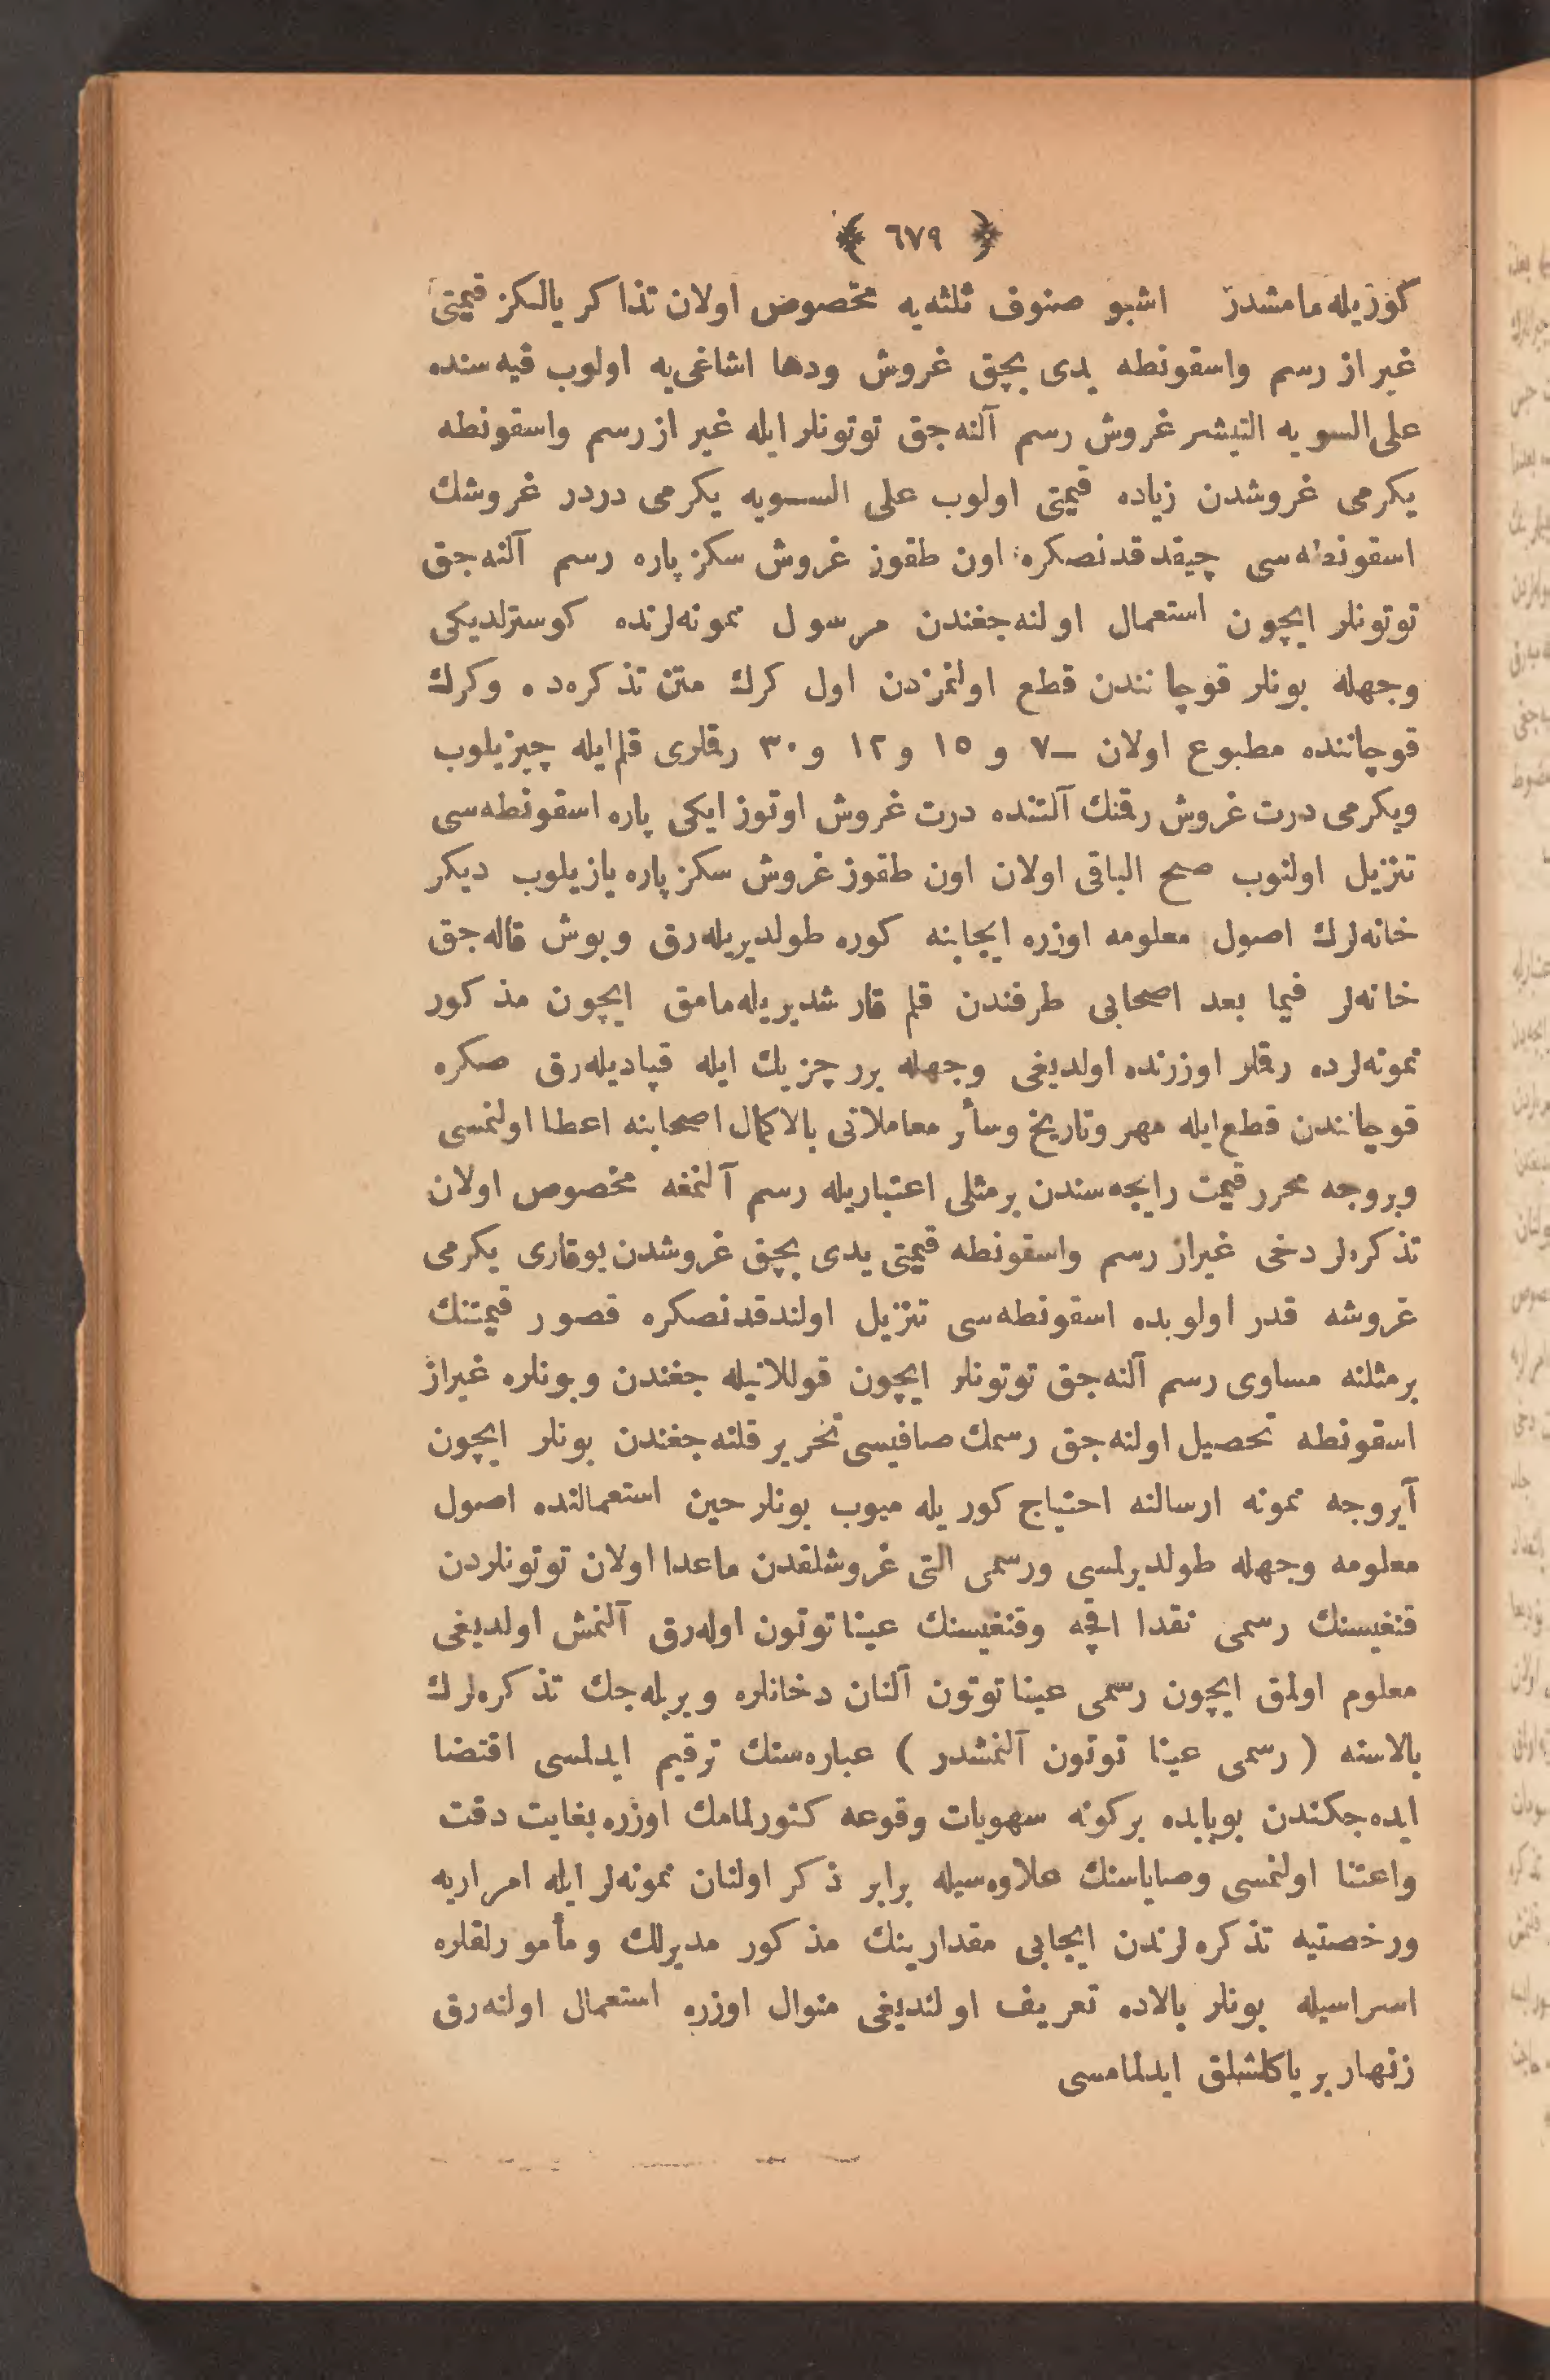 ﴿ ٦٧٩ ﴾
كوزيله‌مامشدر اشبو صنوف ثلثه‌يه مخصوص اولان تذاكر يالكز قيمتى
غير از رسم واسقونطه يدى بچق غروش ودها اشاغى‌يه اولوب قيه‌سنده
على‌السويه التيشر غروش رسم آلنه‌جق توتونلر ايله غير از رسم واسقونطه
يكرمى غروشدن زياده قيمتى اولوب على السويه يكرمى دردر غروشك
اسقونطه‌سى چيقدقدنصكره اون طقوز غروش سكز پاره رسم آلنه‌جق
توتونلر ايچون استعمال اولنه‌جغندن مرسول نمونه‌لرنده كوسترلديكى
وجهله بونلر قوچانندن قطع اولنمزدن اول كرك متن تذكره‌ده وكرك
قوچاننده مطبوع اولان ــ٧ و ١٥ و ١٢ و ٣٠ رقملرى قلم‌ايله چيزيلوب
ويكرمى درت غروش رقمنك آلتنده درت غروش اوتوز ايكى پاره اسقونطه‌سى
تنزيل اولنوب صح الباقى اولان اون طقوز غروش سكز پاره يازيلوب ديكر
خانه‌لرك اصول معلومه اوزره ايجابنه كوره طولديريله‌رق وبوش قاله‌جق
خانه‌لر فيما بعد اصحابى طرفندن قلم قارشديريله‌مامق ايچون مذكور
نمونه‌لرده رقملر اوزرنده اولديغى وجهله برر چزيك ايله قپاديله‌رق صكره
قوچانندن قطع‌ايله مهر وتاريخ وسائر معاملاتى بالاكمال اصحابنه اعطا اولنمسى
وبروجه محرر قيمت رايجه‌سندن برمثلى اعتباريله رسم آلنمغه مخصوص اولان
تذكره‌لر دخى غيراز رسم واسقونطه قيمتى يدى بچق غروشدن يوقارى يكرمى
غروشه قدر اولوبده اسقونطه‌سى تنزيل اولندقدنصكره قصور قيمتنك
برمثلنه مساوى رسم آلنه‌جق توتونلر ايچون قوللانيله جغندن وبونلره غيراز
اسقونطه تحصيل اولنه‌جق رسمك صافيسى تحرير قلنه‌جغندن بونلر ايچون
آيروجه نمونه ارسالنه احتياج كوريله ميوب بونلر حين استعمالنده اصول
معلومه وجهله طولديرلمسى ورسمى التى غروشلقدن ماعدا اولان توتونلردن
قنغيسنك رسمى نقدا اقچه وقنغيسنك عينا توتون اوله‌رق آلنمش اولديغى
معلوم اولمق ايچون رسمى عينا توتون آلنان دخانلره ويريله‌جك تذكره‌لرك
بالاسنه ( رسمى عينا توتون آلنمشدر ) عباره‌سنك ترقيم ايدلمسى اقتضا
ايده‌جكندن بوبابده بركونه سهويات وقوعه كتورلمامك اوزره بغايت دقت
واعتنا اولنمسى وصاياسنك علاوه‌سيله برابر ذكر اولنان نمونه‌لر ايله امراريه
ورخصتيه تذكره‌لرندن ايجابى مقدارينك مذكور مديرلك ومأمورلقلره
اسراسيله بونلر بالاده تعريف اولنديغى منوال اوزره استعمال اولنه‌رق
زنهار بر ياكلشلق ايدلمامسى